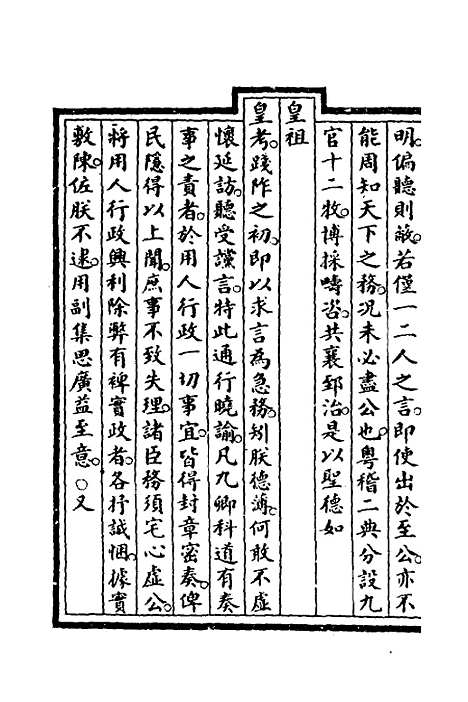 明。偏聽則蔽。若僅一二人之言。即使出於至公。亦不
能周知天下之務。况未必盡公也。粤稽二典分設九
官十二牧。博採疇咨。共襄郅治。是以聖德如
皇祖
皇考。踐阼之初。即以求言為急務。矧朕德薄。何敢不虛
懷延訪。聽受讜言。特此通行曉諭。凡九卿科道有奏
事之責者。於用人行政一切事宜。皆得封章密奏。俾
民隱得以上聞。庶事不致失理。諸臣務須宅心虛公。
將用人行政興利除弊有裨實政者。各抒誠悃。據實
敷陳。佐朕不逮。用副集思廣益至意。○又